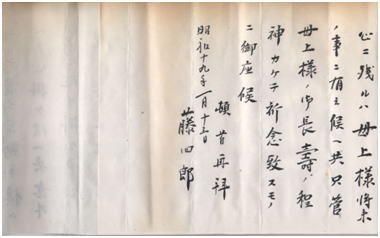 心ニ残ルハ母上様将来
ノ事ニ有之候ヘ共只管
母上様ノ御長壽ノ程
神カケテ祈念致スモノ
ニ御座候
頓首再拝
昭和十九年一月十三日
藤四郎